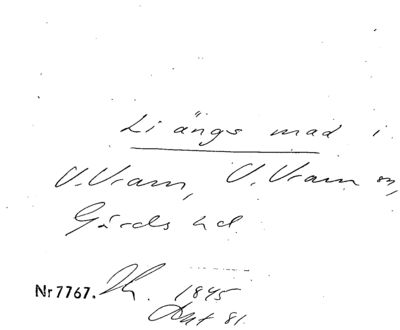 Li ängs mad i
V. Vram, V. Vram sn,
Gärds hd
Nr 7767. 1845
Ant 81.